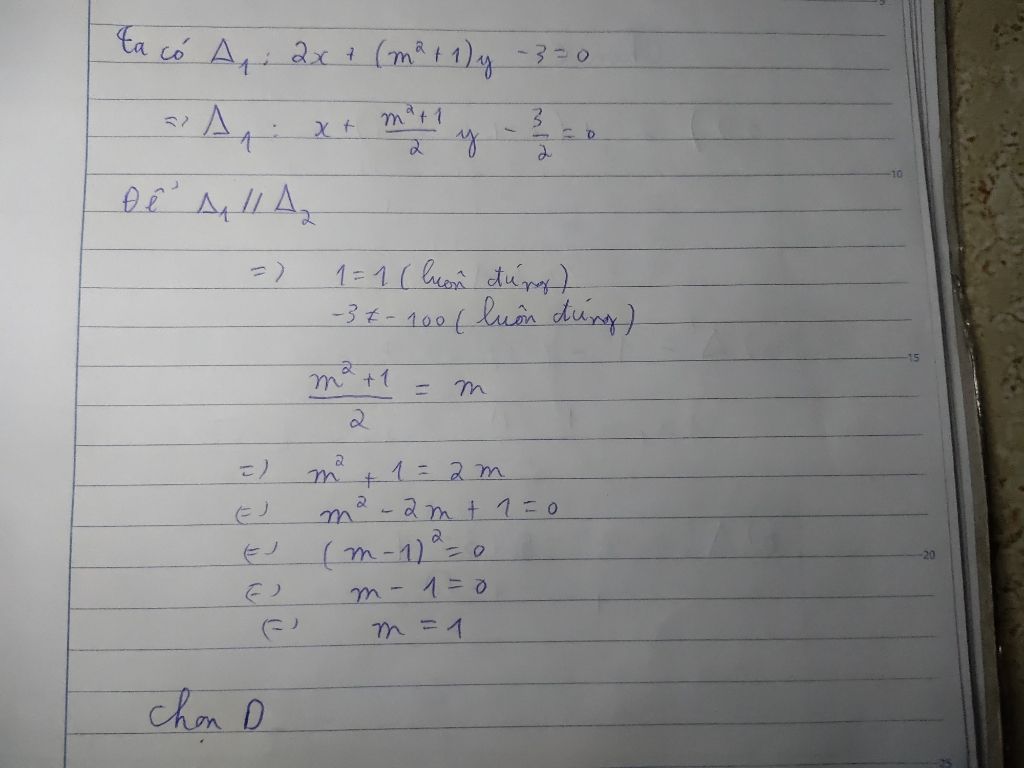 Ta có Δ₁: 2x + (m² + 1)y - 3 = 0
=> Δ₁: x + \frac{m² + 1}{2} y - \frac{3}{2} = 0
10
Để Δ₁ // Δ₂
=> 1 = 1 (luôn đúng)
-3 ≠ -100 (luôn đúng)
15
\frac{m² + 1}{2} = m
=> m² + 1 = 2m
(=) m² - 2m + 1 = 0
(=) (m - 1)² = 0
20
(=) m - 1 = 0
(=) m = 1
Chọn D
25